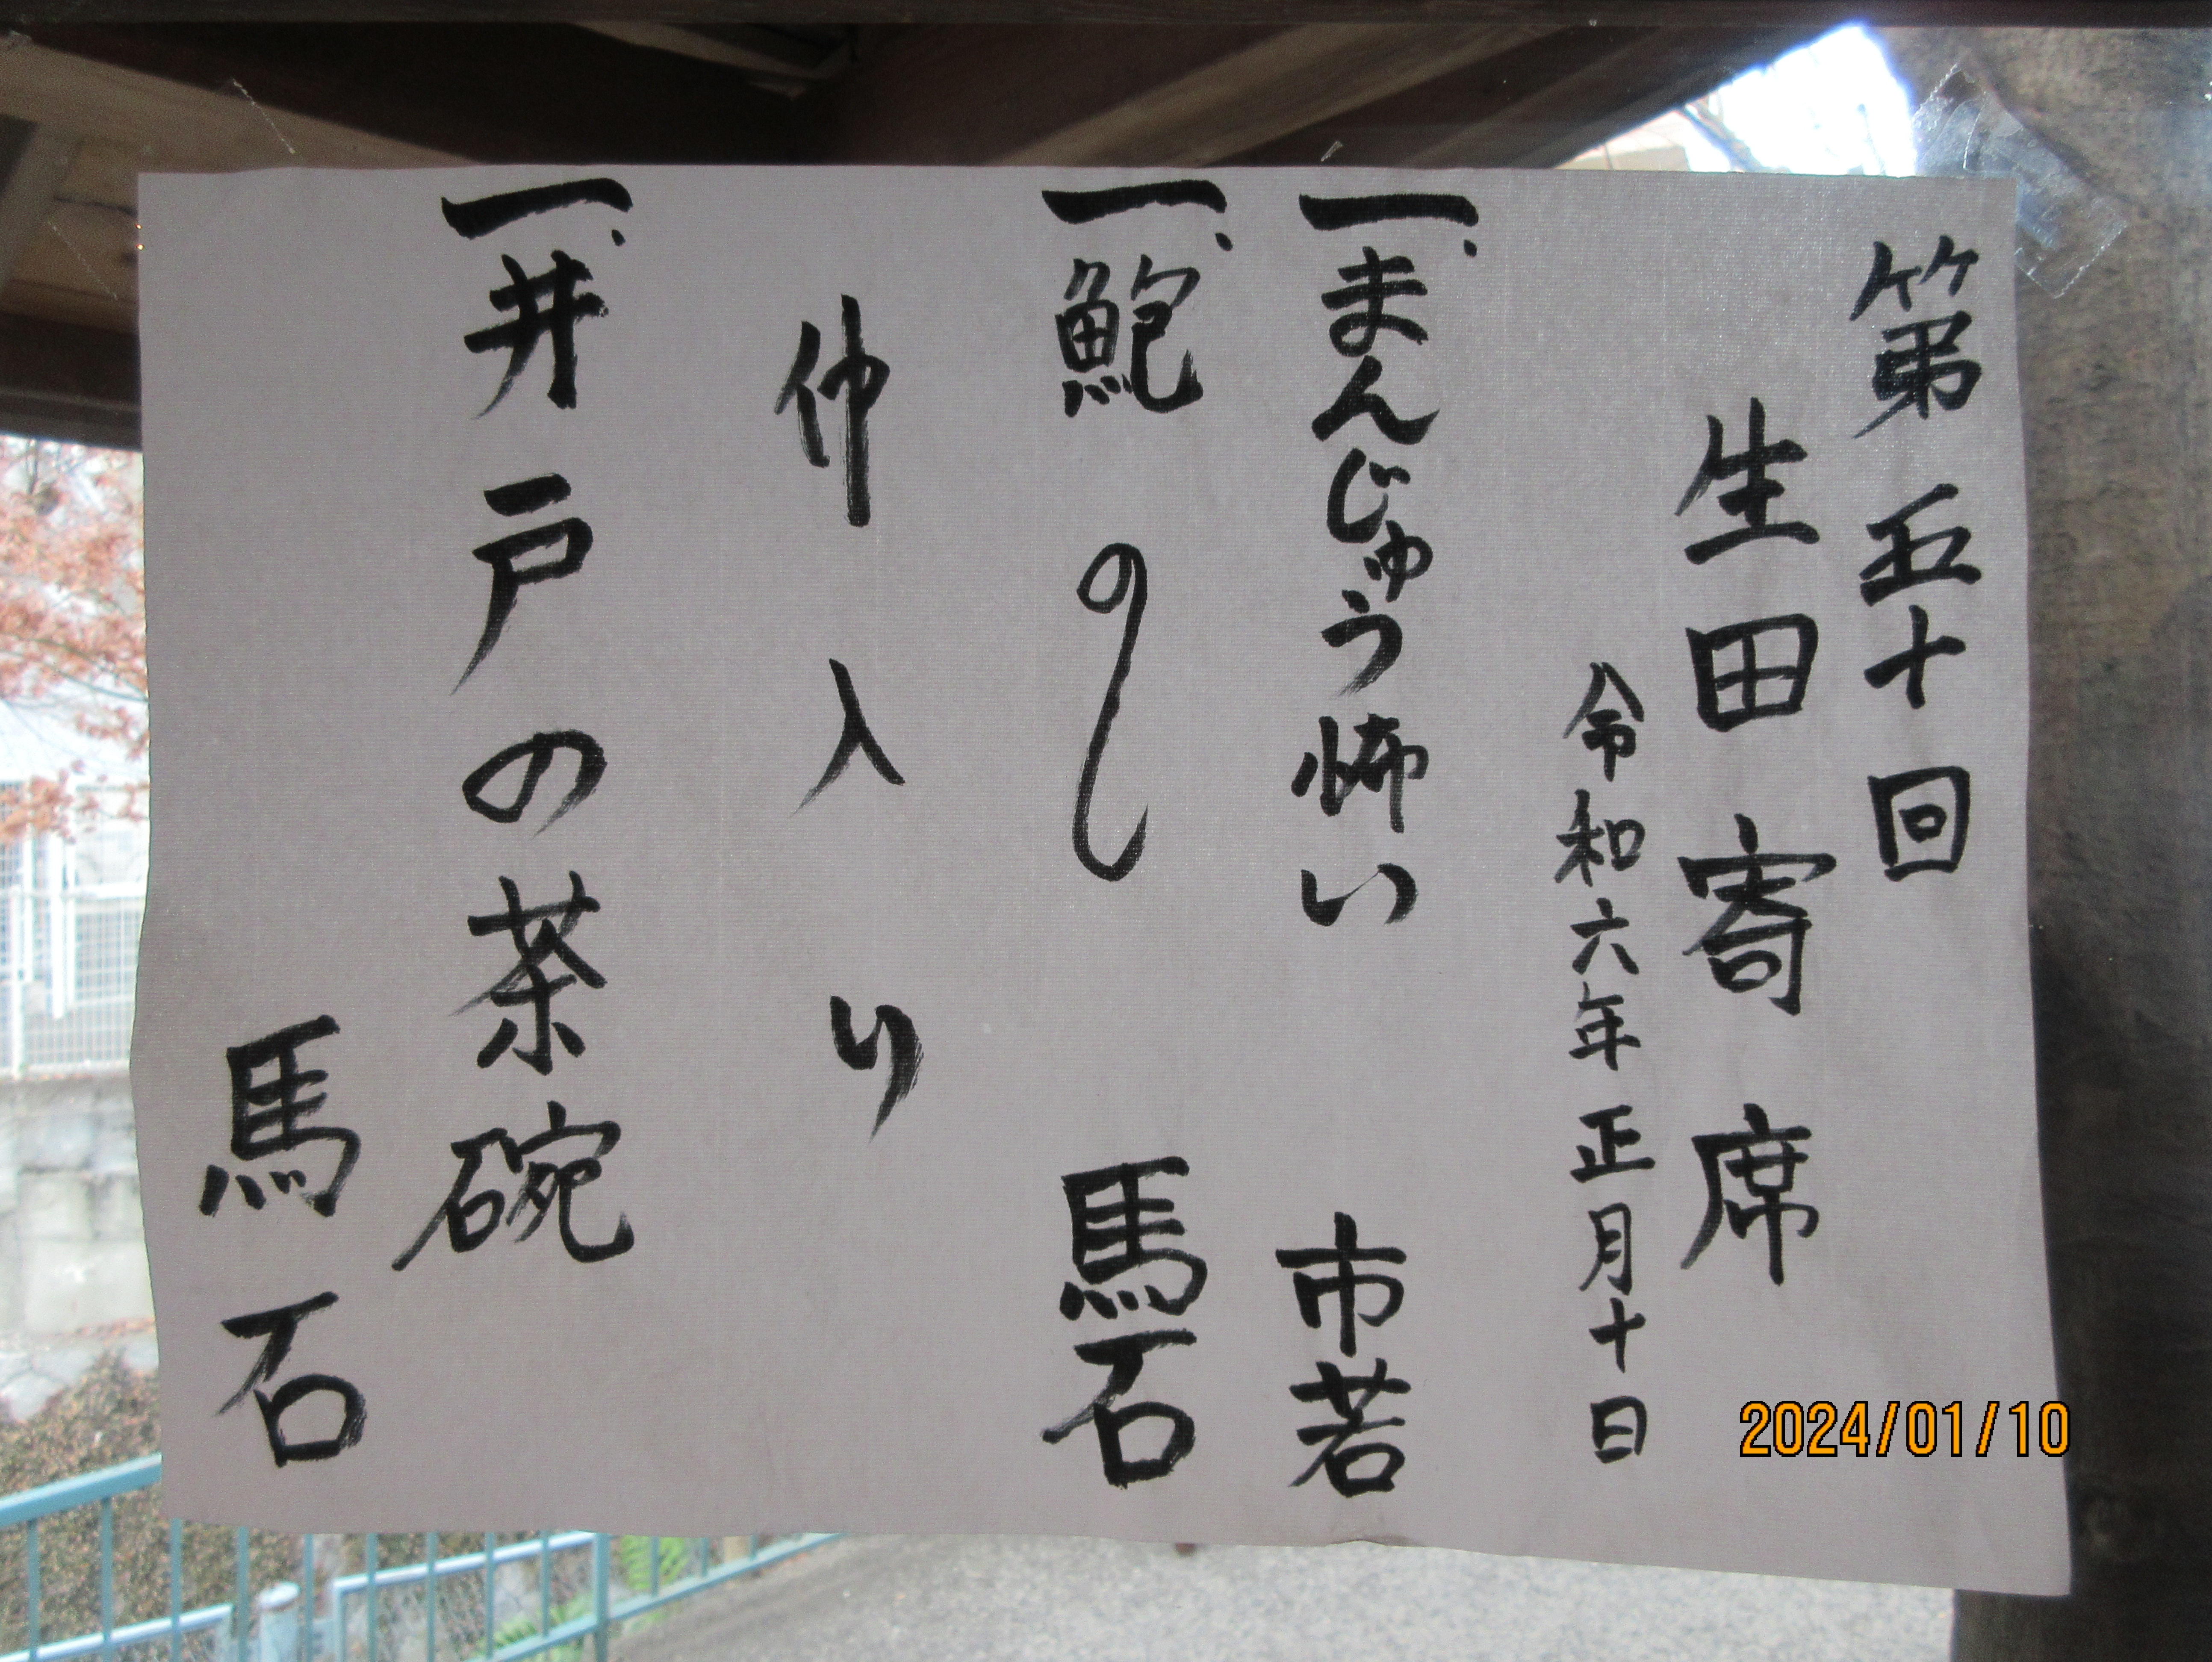 第五十回
生田寄席
令和六年正月十日
一、まんじゅう怖い 市若
一、鮑のし 馬石
仲入り
一、井戸の茶碗
馬石
2024/01/10